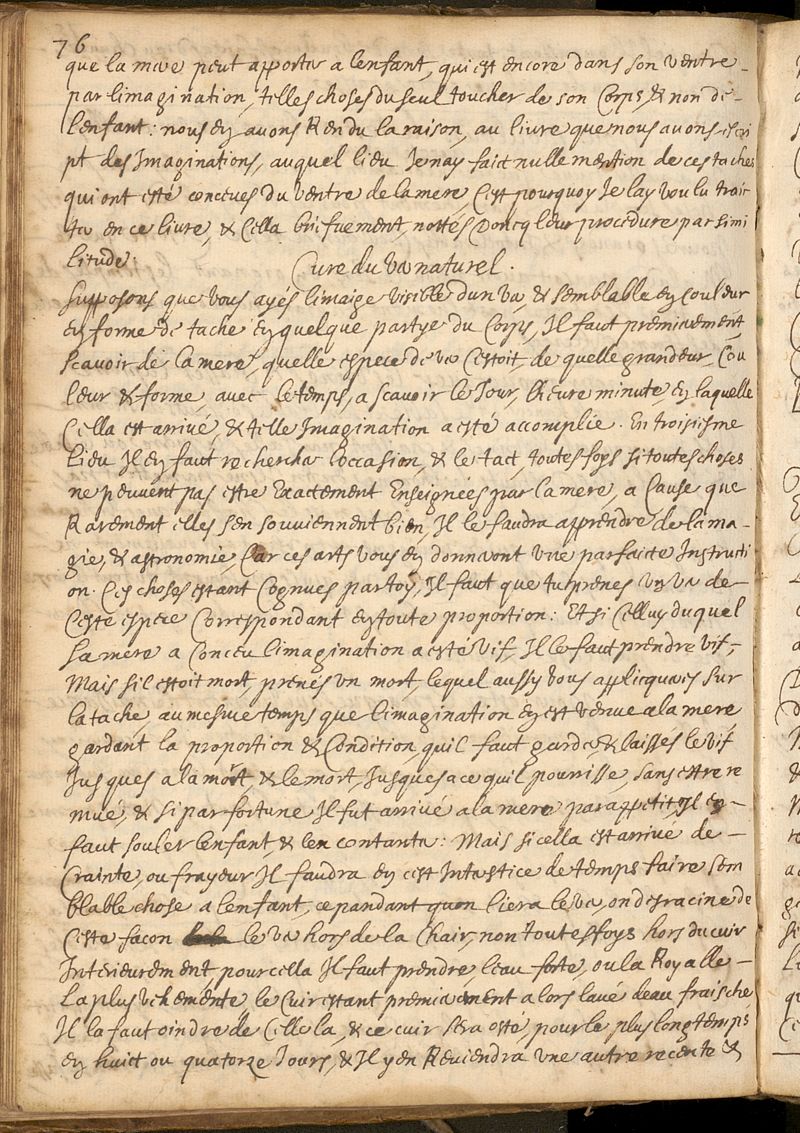 76
que la mere peut apporter a lenfant, qui est encore dans son ventre -
par limagination, telles choses du seul toucher de son Corps, & non de -
lenfant: nous en avons Rendu la raison, au livre que nous avons escri
pt des Imaginations, auquel lieu Je nay faict nulle mention de ces taches
qui ont esté conceues du ventre de la mere, Cest pourquoy Je lay voulu traic
ter en ce livre, & Cella briefvement, nottés Doncq leur procedure par simi
litude.
Cure du ver naturel.
Supposons que vous ayés limaige visible dun ver, & semblable en couleur
en forme de tache en quelque partye du Corps, Il faut premierement
scavoir de la mere, quelle espece de ver Cestoit, de quelle grandeur, Cou
leur & forme, avec le temps, a scavoir le Jour, lheure minute, en laquelle
Cella est arrivé, & telle Imagination a esté accomplie. En troisiesme
lieu Il en faut rechercher loccasion, & le tact, toutesfoys si toutes choses
ne peuvent pas estre Exactement Enseignées par la mere, a Cause que
Rarement elles sen souviennent bien, Il le faudra apprendre de la ma-
gie, & astronomie, Car ces arts vous en donneront une parfaicte Instructi
on. Ces choses estant Cognues par toy, Il faut que tu prenes un ver de -
Ceste espece Correspondant en toute proportion: Et si Celluy duquel
la mere a Conceu limagination a esté vif, Il le faut prendre vif,
Mais sil estoit mort, prenés un mort, lequel aussy vous applicquerés sur
la tache, au mesme temps que limagination en est venue a la mere,
gardant la proportion & Condition, quil faut garder & laisses le vif
Jusques a la mort, & le mort, Jusques a ce quil pourrisse, sans estre re
mué, & si par fortune Il fut arrivé a la mere par appetit, Il en -
faut souler lenfant, & len contanter: Mais si cella est arrivé de -
Crainte, ou frayeur Il faudra en cest Interstice de temps faire sem
blable chose a lenfant, cepandant quon liera le ver, on desracine de
Ceste facon le ver hors de la Chair, non toutesfoys hors du cuir
Interieurement pour cella Il faut prendre, leau forte, ou la Royalle -
La plus vehemente le Cuir estant premierement alors lavé deau fraische
Il la faut oindre de Celle la, & ce cuir sera osté, pour le plus long temps
en huict ou quatorze Jours, & Il y en Reviendra une autre recente &